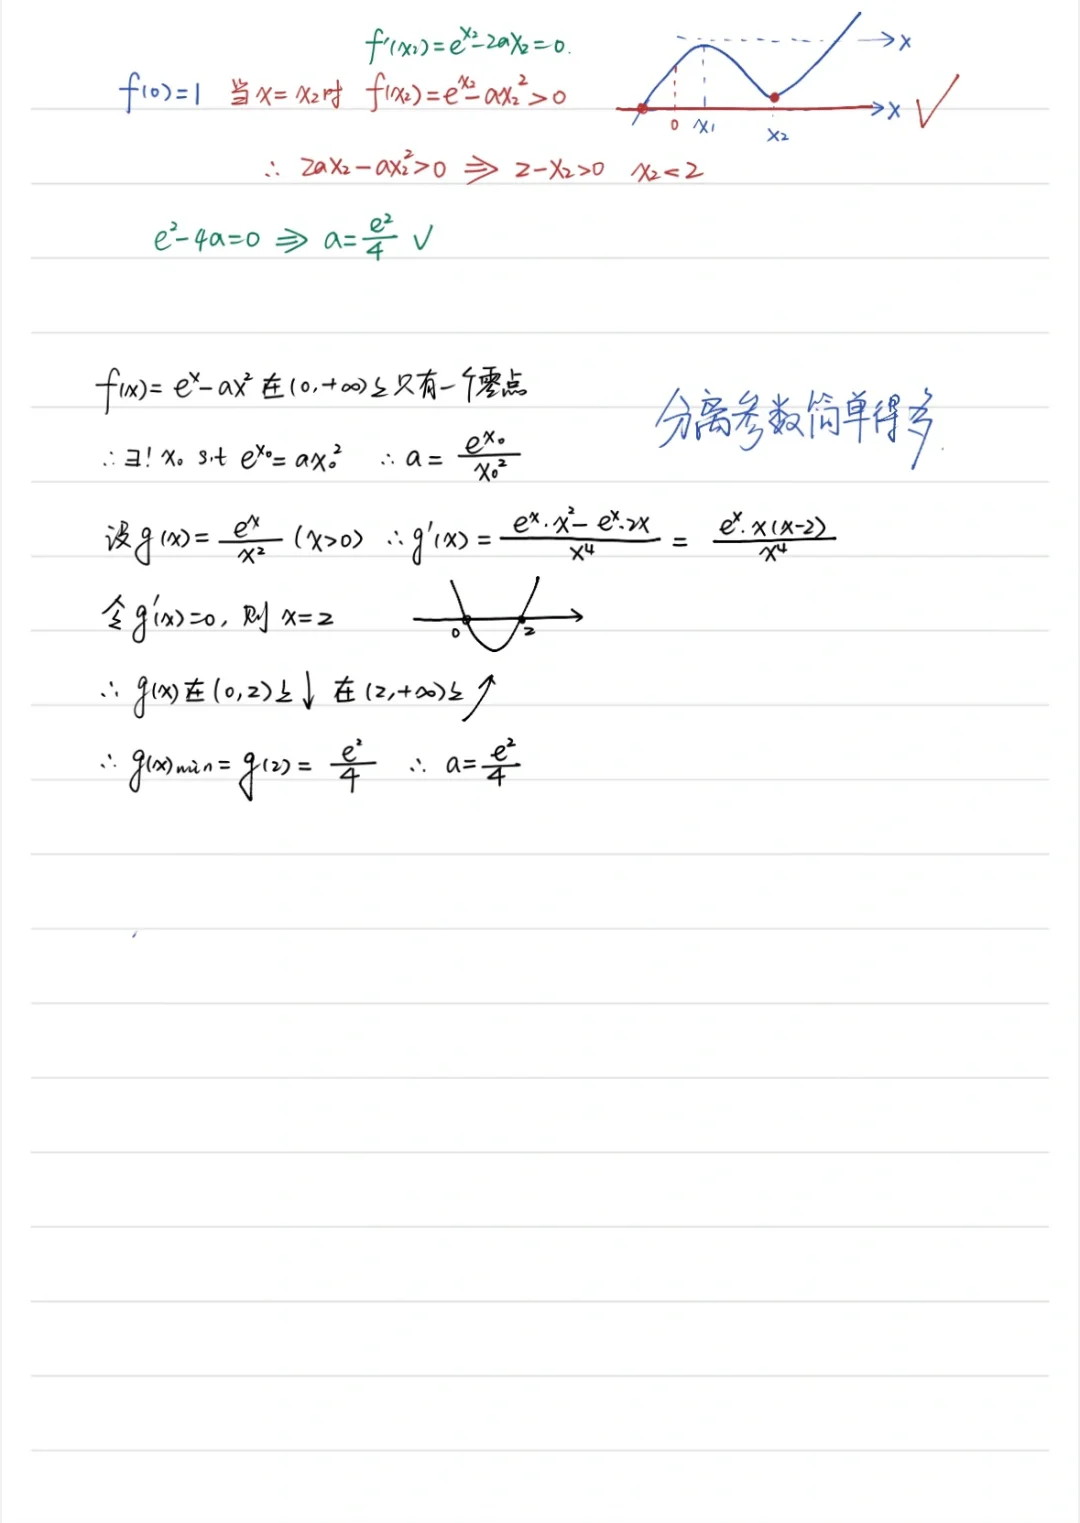 f'(x₂)=e^{x₂}-2ax₂=0.
f(0)=1 当x=x₂时 f(x₂)=e^{x₂}-ax₂²>0
x
0 x₁ x₂ x ✓
∴ 2ax₂-ax₂²>0 ⇒ 2-x₂>0 x₂<2
e²-4a=0 ⇒ a=e²/4 ✓
f(x)=e^x-ax² 在(0,+∞)上只有一个零点
分离参数简单得多.
∴∃! x₀ s.t e^{x₀}=ax₀² ∴a=e^{x₀}/x₀²
设g(x)=e^x/x² (x>0) ∴g'(x)=(e^x·x²-e^x·2x)/x⁴=e^x·x(x-2)/x⁴
令g'(x)=0, 则 x=2
0 2
∴ g(x)在(0,2)上↓ 在(2,+∞)上↗
∴ g(x)min=g(2)=e²/4 ∴ a=e²/4